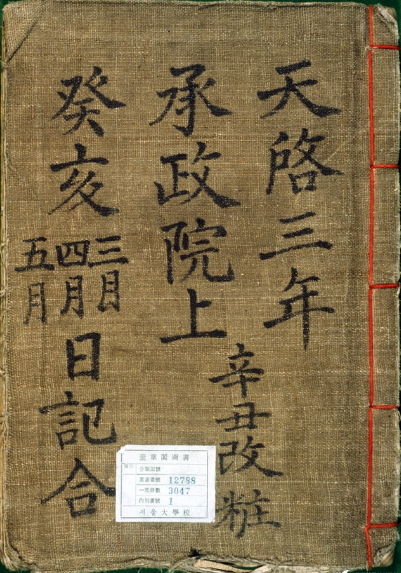 天啓三年
辛丑改粧
承政院上
癸亥
三月
四月
五月
日記合
奎章閣圖書
12788
3047
1
서울大學校